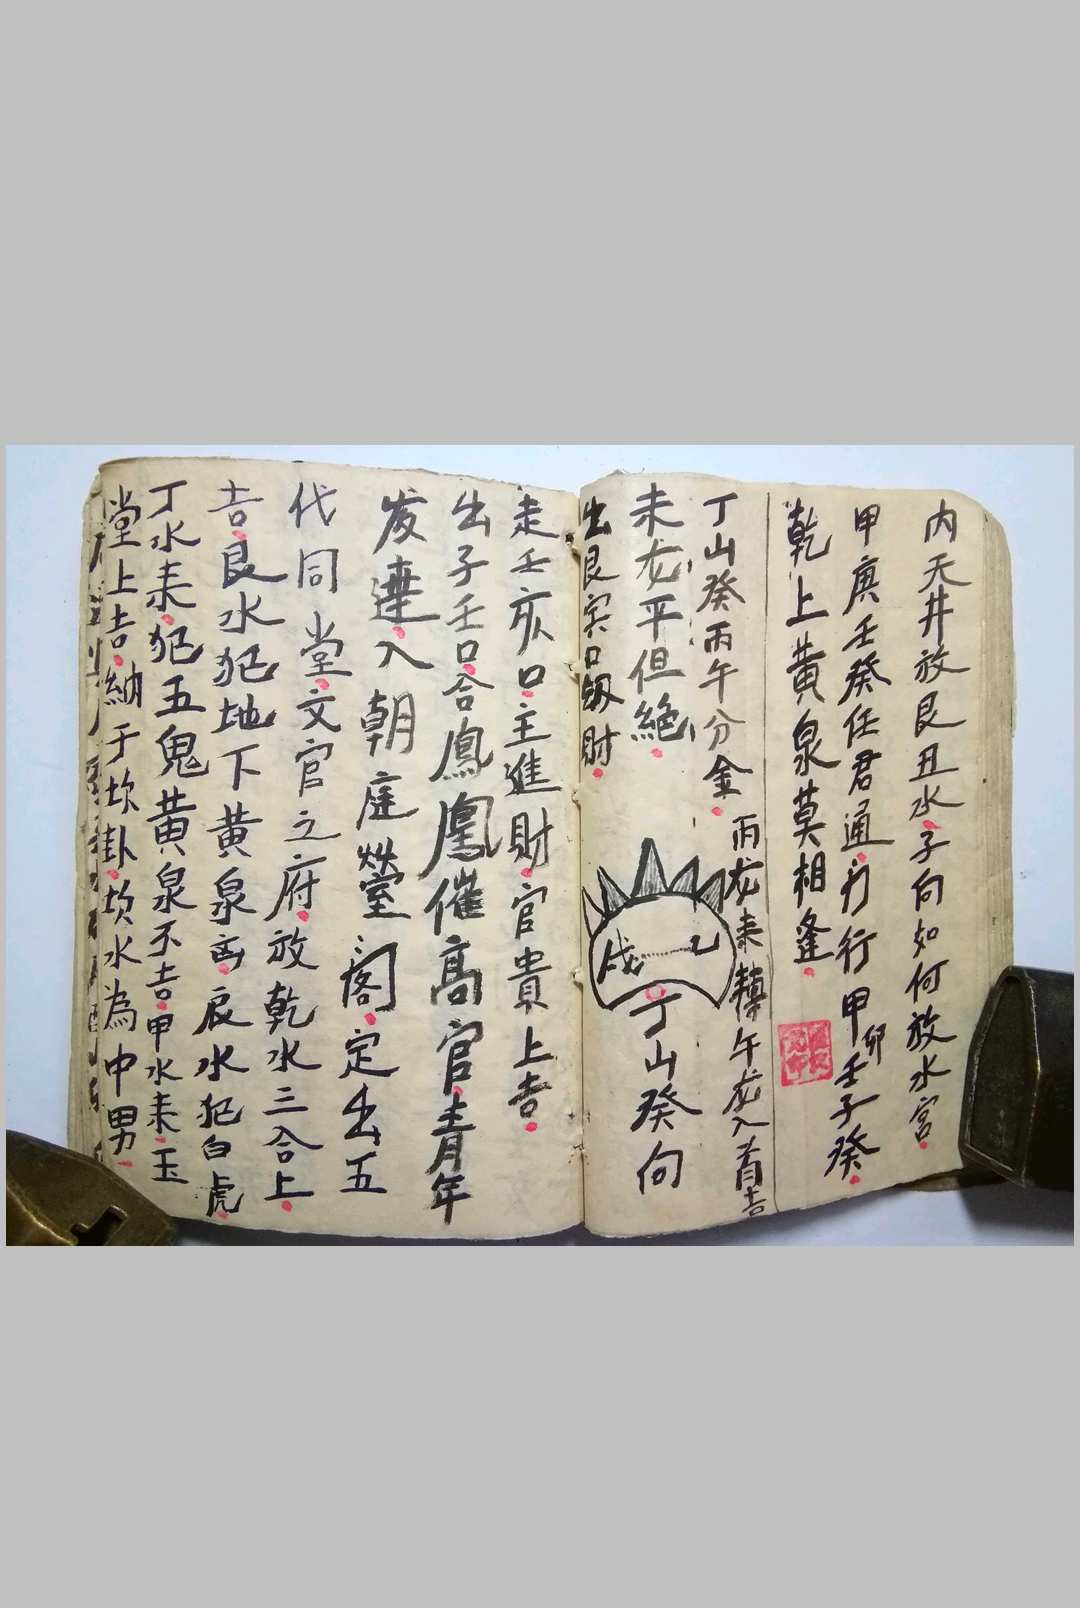 内天井放艮丑水子向如何放水宫
甲庚壬癸任君通方行甲卯壬子癸
乾上黄泉莫相逢
丙龙来轉午龙入首吉
丁山癸丙午分金
丁山癸向
未龙平但絶
出艮寅口財
走壬亥口主進財官貴上吉
出子壬口合鳳凰催高官青年
发達入朝庭閣定出五
代同堂文官之府放乾水三合上
吉艮水犯地下黄泉凶辰水犯白虎
丁水来犯五鬼黄泉不吉甲水来玉
堂上吉納于坎卦坎水為中男